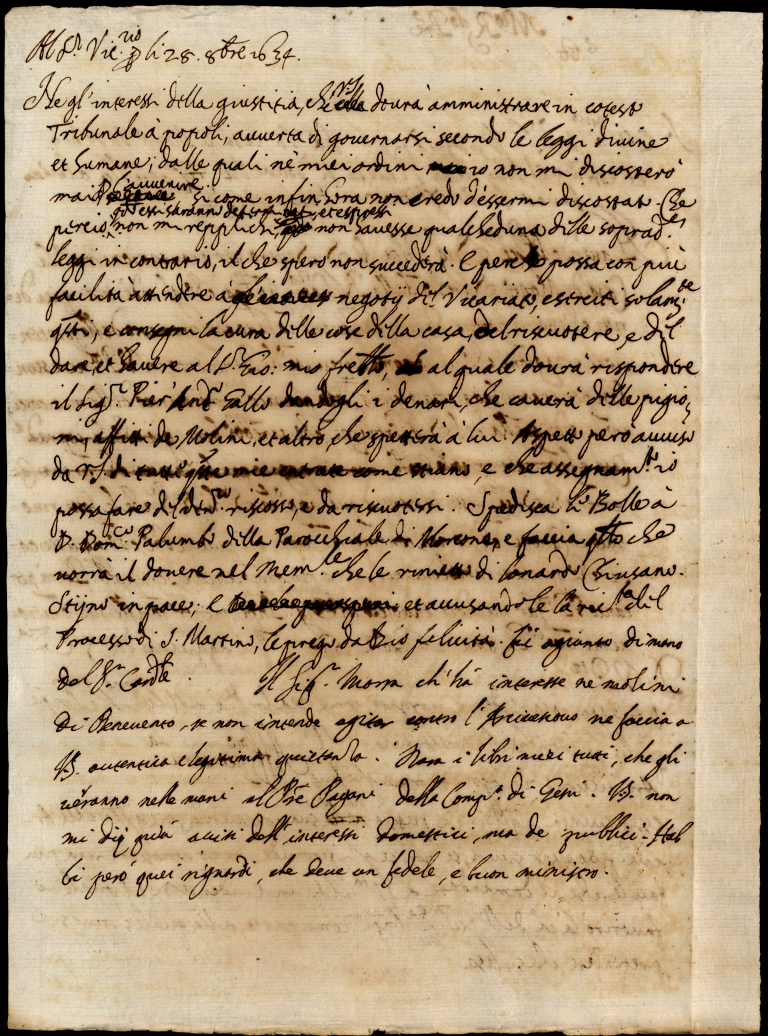 Al Sr. Vic.rio p li 28. 8bre 1634.
Ne gl'interessi della giustitia, che V.S. dovrà amministrare in cotesto
Tribunale à popoli, avverta di governarsi secondo le leggi divine
et humane, dalle quali nè miei ordini io non mi discosterò
mai p l'avvenire si come infin hora non credo d'essermi discostato. Che
perciò non mi replichi, non havesse qualcheduna delle soprad.e
leggi in contrario, il che spero non succederà. E perche possa con più
facilità attendere à negotij del Vicariato, eserciti solam.te
qsti, e consegni la cura delle cose della casa, del riscuotere, e del
dare, et havere al Sr. mio frello, al quale dovrà rispondere
il Sig.r Pier'And.a Gallo dandogli i denari, che caverà delle pigio,
ni, affitti de Molini, et altro, che spetterà à lui. Aspetto però avviso
da V.S. di tutte qste mie entrate come stiano, e che assegnam.to io
possa fare del den.ro riscosso, e da riscuotersi. Spedisca le Bolle à
D. Dom.co Palumbo della Parocchiale di Morcone, e faccia qto che
vorrà il dovere nel Mem.le che le rimetto di Lonardo Chiusano.
Stijno in pace, et avvisandole la ric.ta del
Processo di S. Martino, le prego da Dio felicità. Fù agionto di mano
del Sr. Card.le Il Sig.r Morra ch'hà interesse ne molini
di Benevento, se non intende agitar contro l'Arcivescovo ne faccia a
V.S. autentica e legittima quietanza. i libri miei tutti, che gli
verranno nelle mani al Pre Pagani della Comp.a di Giesù. V.S. non
mi dij più avisi dell'interessi domestici, ma de publici. Hab
bi però quei riguardi, che deve un fedele, e buon ministro.